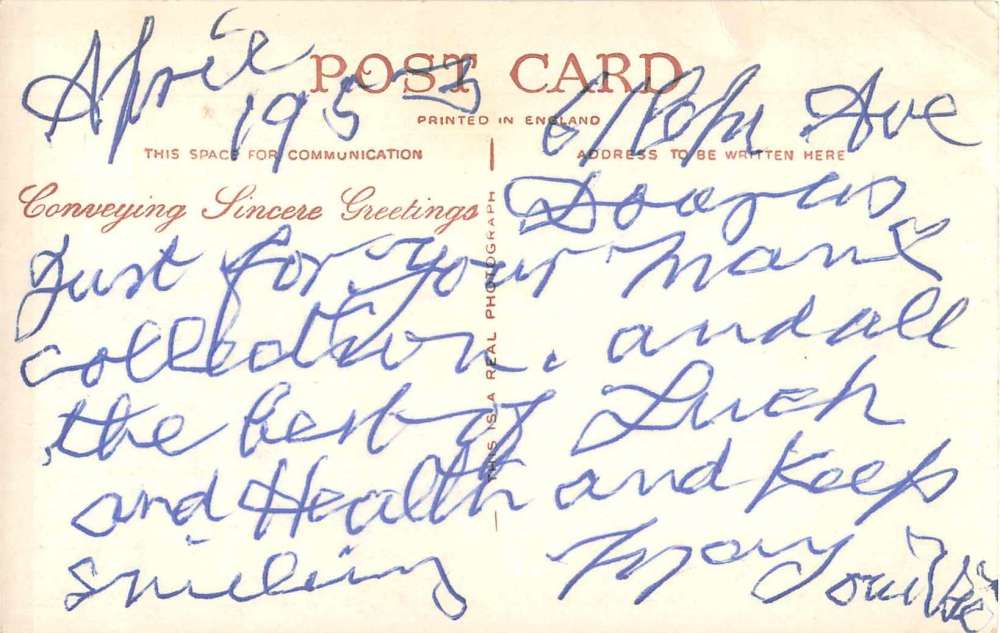 April
POST CARD
1953
PRINTED IN ENGLAND
Ave
THIS SPACE FOR COMMUNICATION
ADDRESS TO BE WRITTEN HERE
Conveying Sincere Greetings
Douglas
THIS IS A REAL PHOTOGRAPH
Just for your Manx
collection. and all
the best of Luck
and Health and Keep
smiling